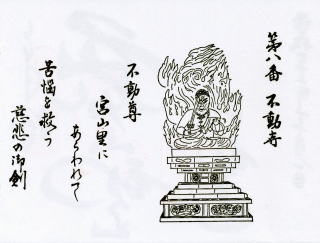 第八番 不動寺
不動尊
宮山里に
あらわれて
苦悩を救う
慈悲の御剣